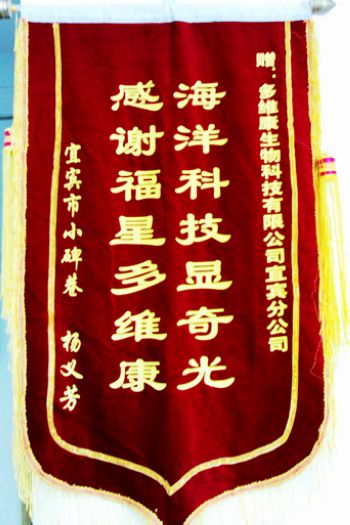 赠：多维康生物科技有限公司宜宾分公司
海洋科技显奇光
感谢福星多维康
宜宾市小碑巷 杨义芳